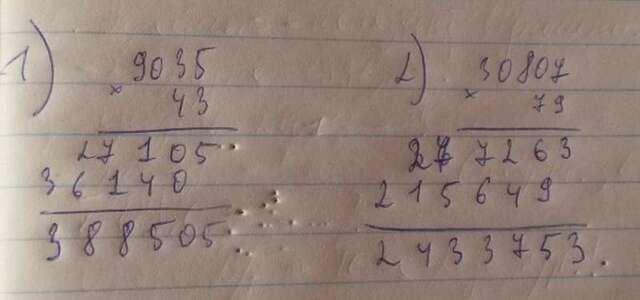 1) 9035
× 43
27105
36140
388505
2) 30807
× 79
277263
215649
2433753.